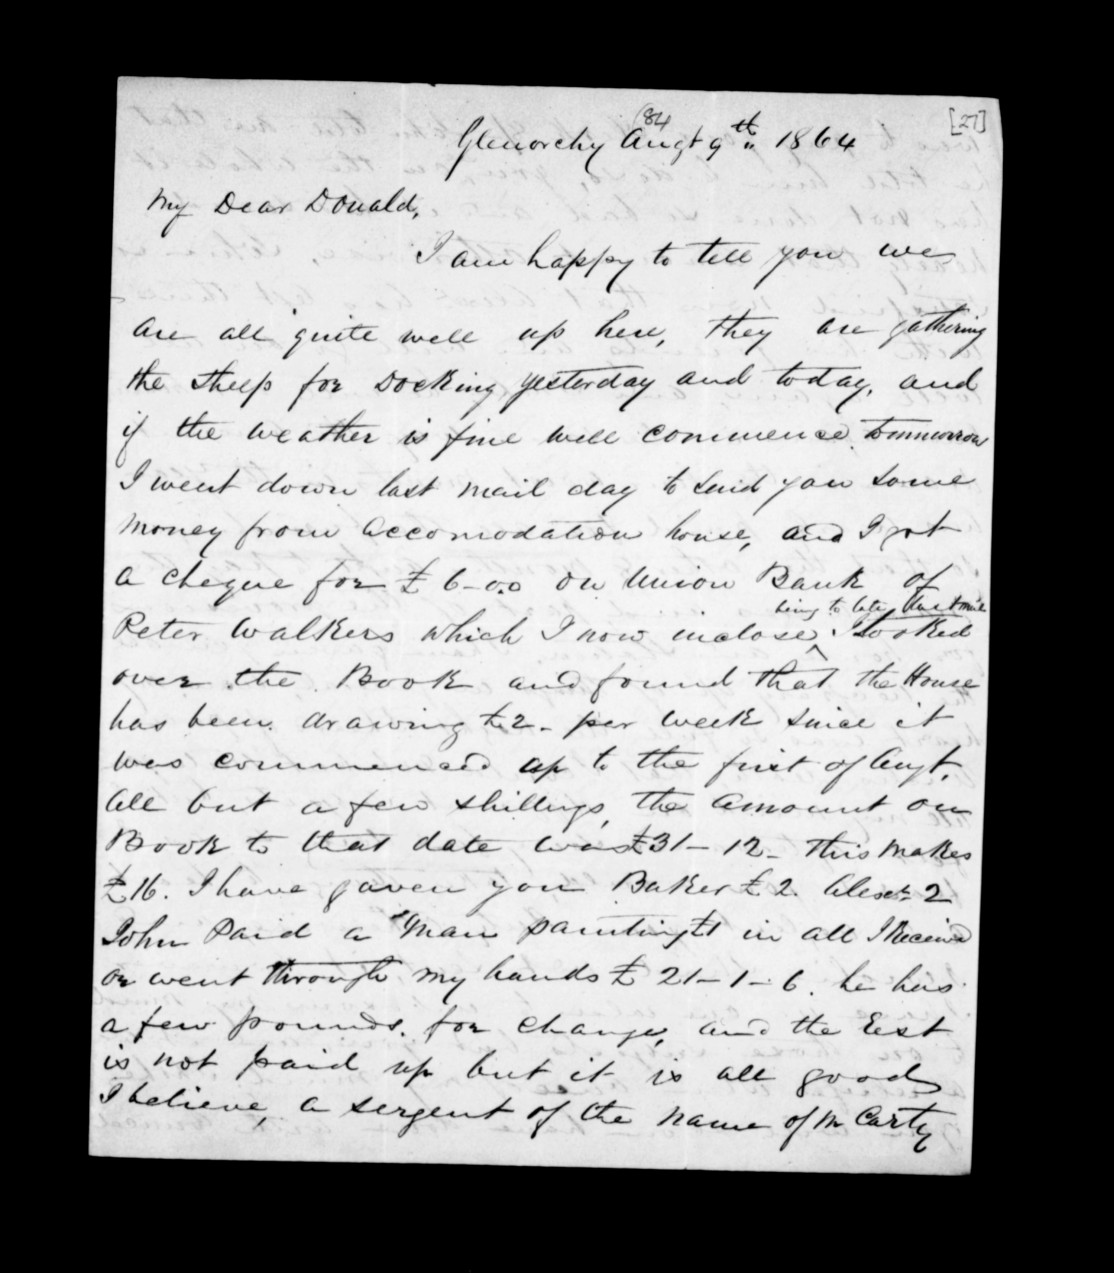 (84
[27]
Glenorchy Augt 9th 1864
My Dear Donald,
I am happy to tell you we
are all quite well up here, they are gathering
the sheep for Docking yesterday and today, and
if the weather is fine well commence tommorrow
I went down last mail day to send you some
money from accomodation house, and I got
a cheque for £ 6-0.0 on Union Bank of
being to late last mail
Peter Walkers which I now inclose. I looked
over the Book and found that the House
has been drawing £2- per week since it
was commenced up to the first of Augt.
all but a few shillings, the amount on
Book to that date was £31-12- this makes
£16. I have gaven you Baker £2. Alexr 2
John Paid a man painting £1 in all I Received
or went through my hands £ 21-1-6. he has
a few pounds for change, and the Rest
is not paid up but it is all good
I believe, a sergent of the name of Mc Carty